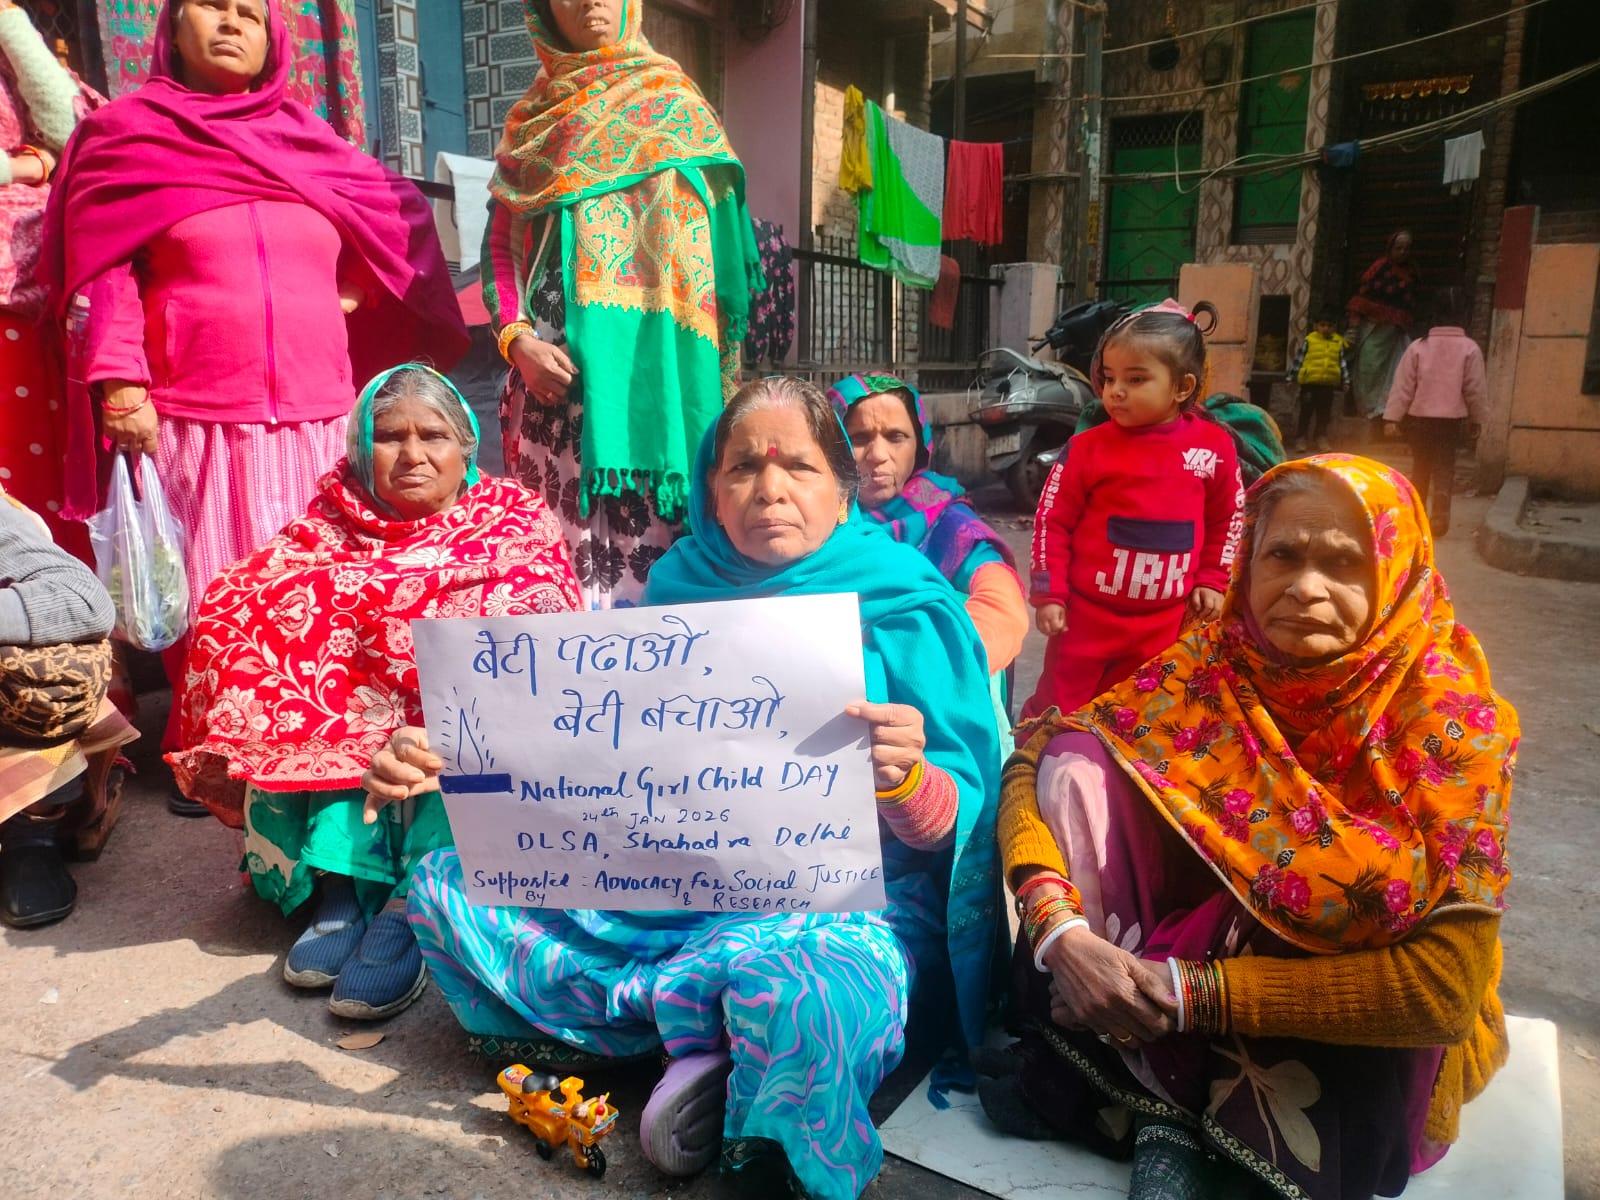 बेटी पढाओ,
बेटी बचाओ,
National Girl Child DAY
24th JAN 2026
DLSA, Shahadra Delhi
Supported By : ADVOCACY For Social JUSTICE
& RESEARCH
JRK